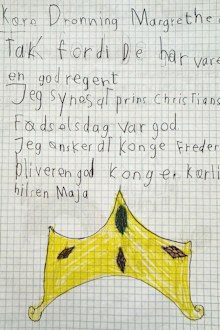 Kære Dronning Margrethe
Tak fordi De har være
en god regent
Jeg synes at prins Christians
Fødselsdag var god
Jeg ønsker at konge Freder
bliver en god konge kærli
hilsen Maja